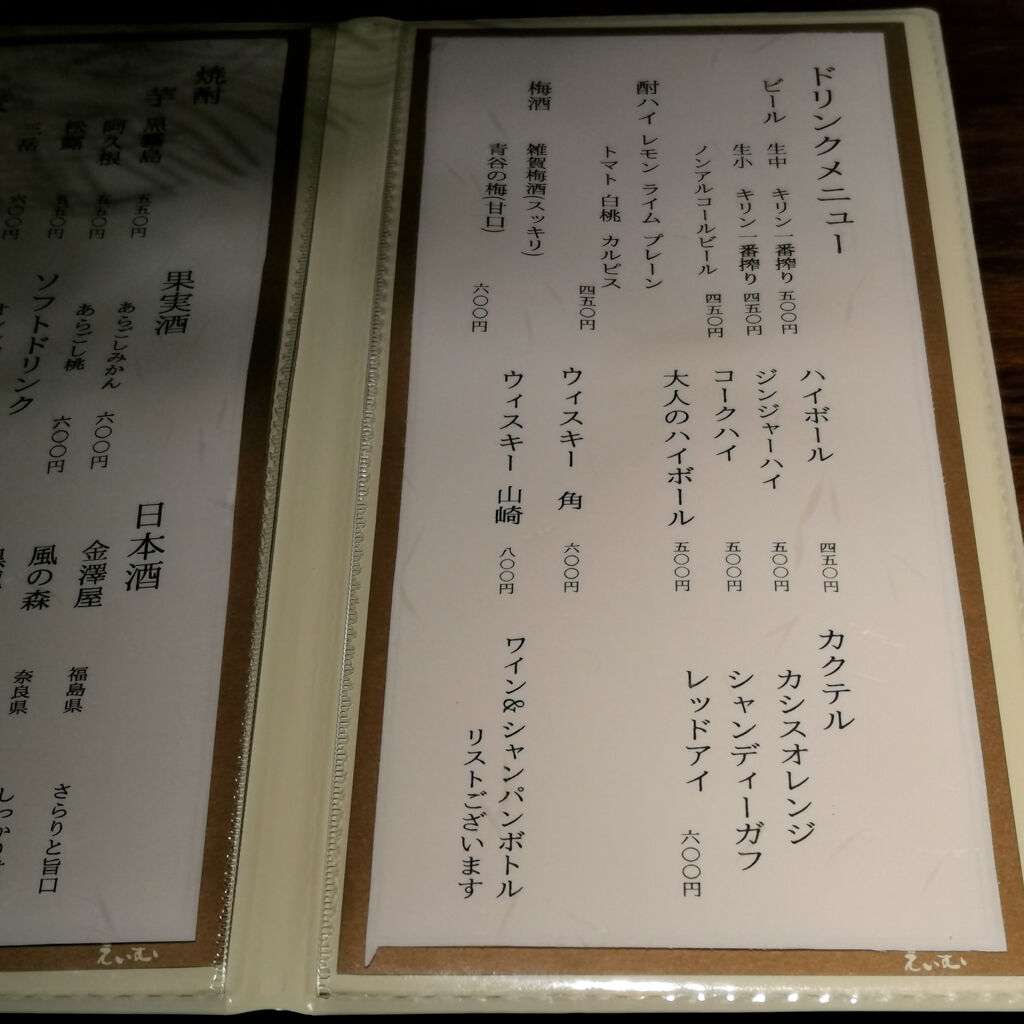 ドリンクメニュー
ビール 生中 キリン一番搾り 五〇〇円
生小 キリン一番搾り 四五〇円
ノンアルコールビール 四五〇円
酎ハイ レモン ライム プレーン
トマト 白桃 カルピス 四五〇円
梅酒 雑賀梅酒(スッキリ)
青谷の梅(甘口) 六〇〇円
ハイボール 四五〇円
ジンジャーハイ 五〇〇円
コークハイ 五〇〇円
大人のハイボール 五〇〇円
ウィスキー 角 六〇〇円
ウィスキー 山崎 八〇〇円
カクテル
カシスオレンジ
シャンディーガフ
レッドアイ 六〇〇円
ワイン&シャンパンボトル
リストございます
えいむ
焼酎
芋 黒霧島 五五〇円
阿久根 五五〇円
松露 五五〇円
三岳 六〇〇円
果実酒
あらごしみかん 六〇〇円
あらごし桃 六〇〇円
ソフトドリンク
日本酒
金澤屋 福島県 さらりと旨口
風の森 奈良県
えいむ